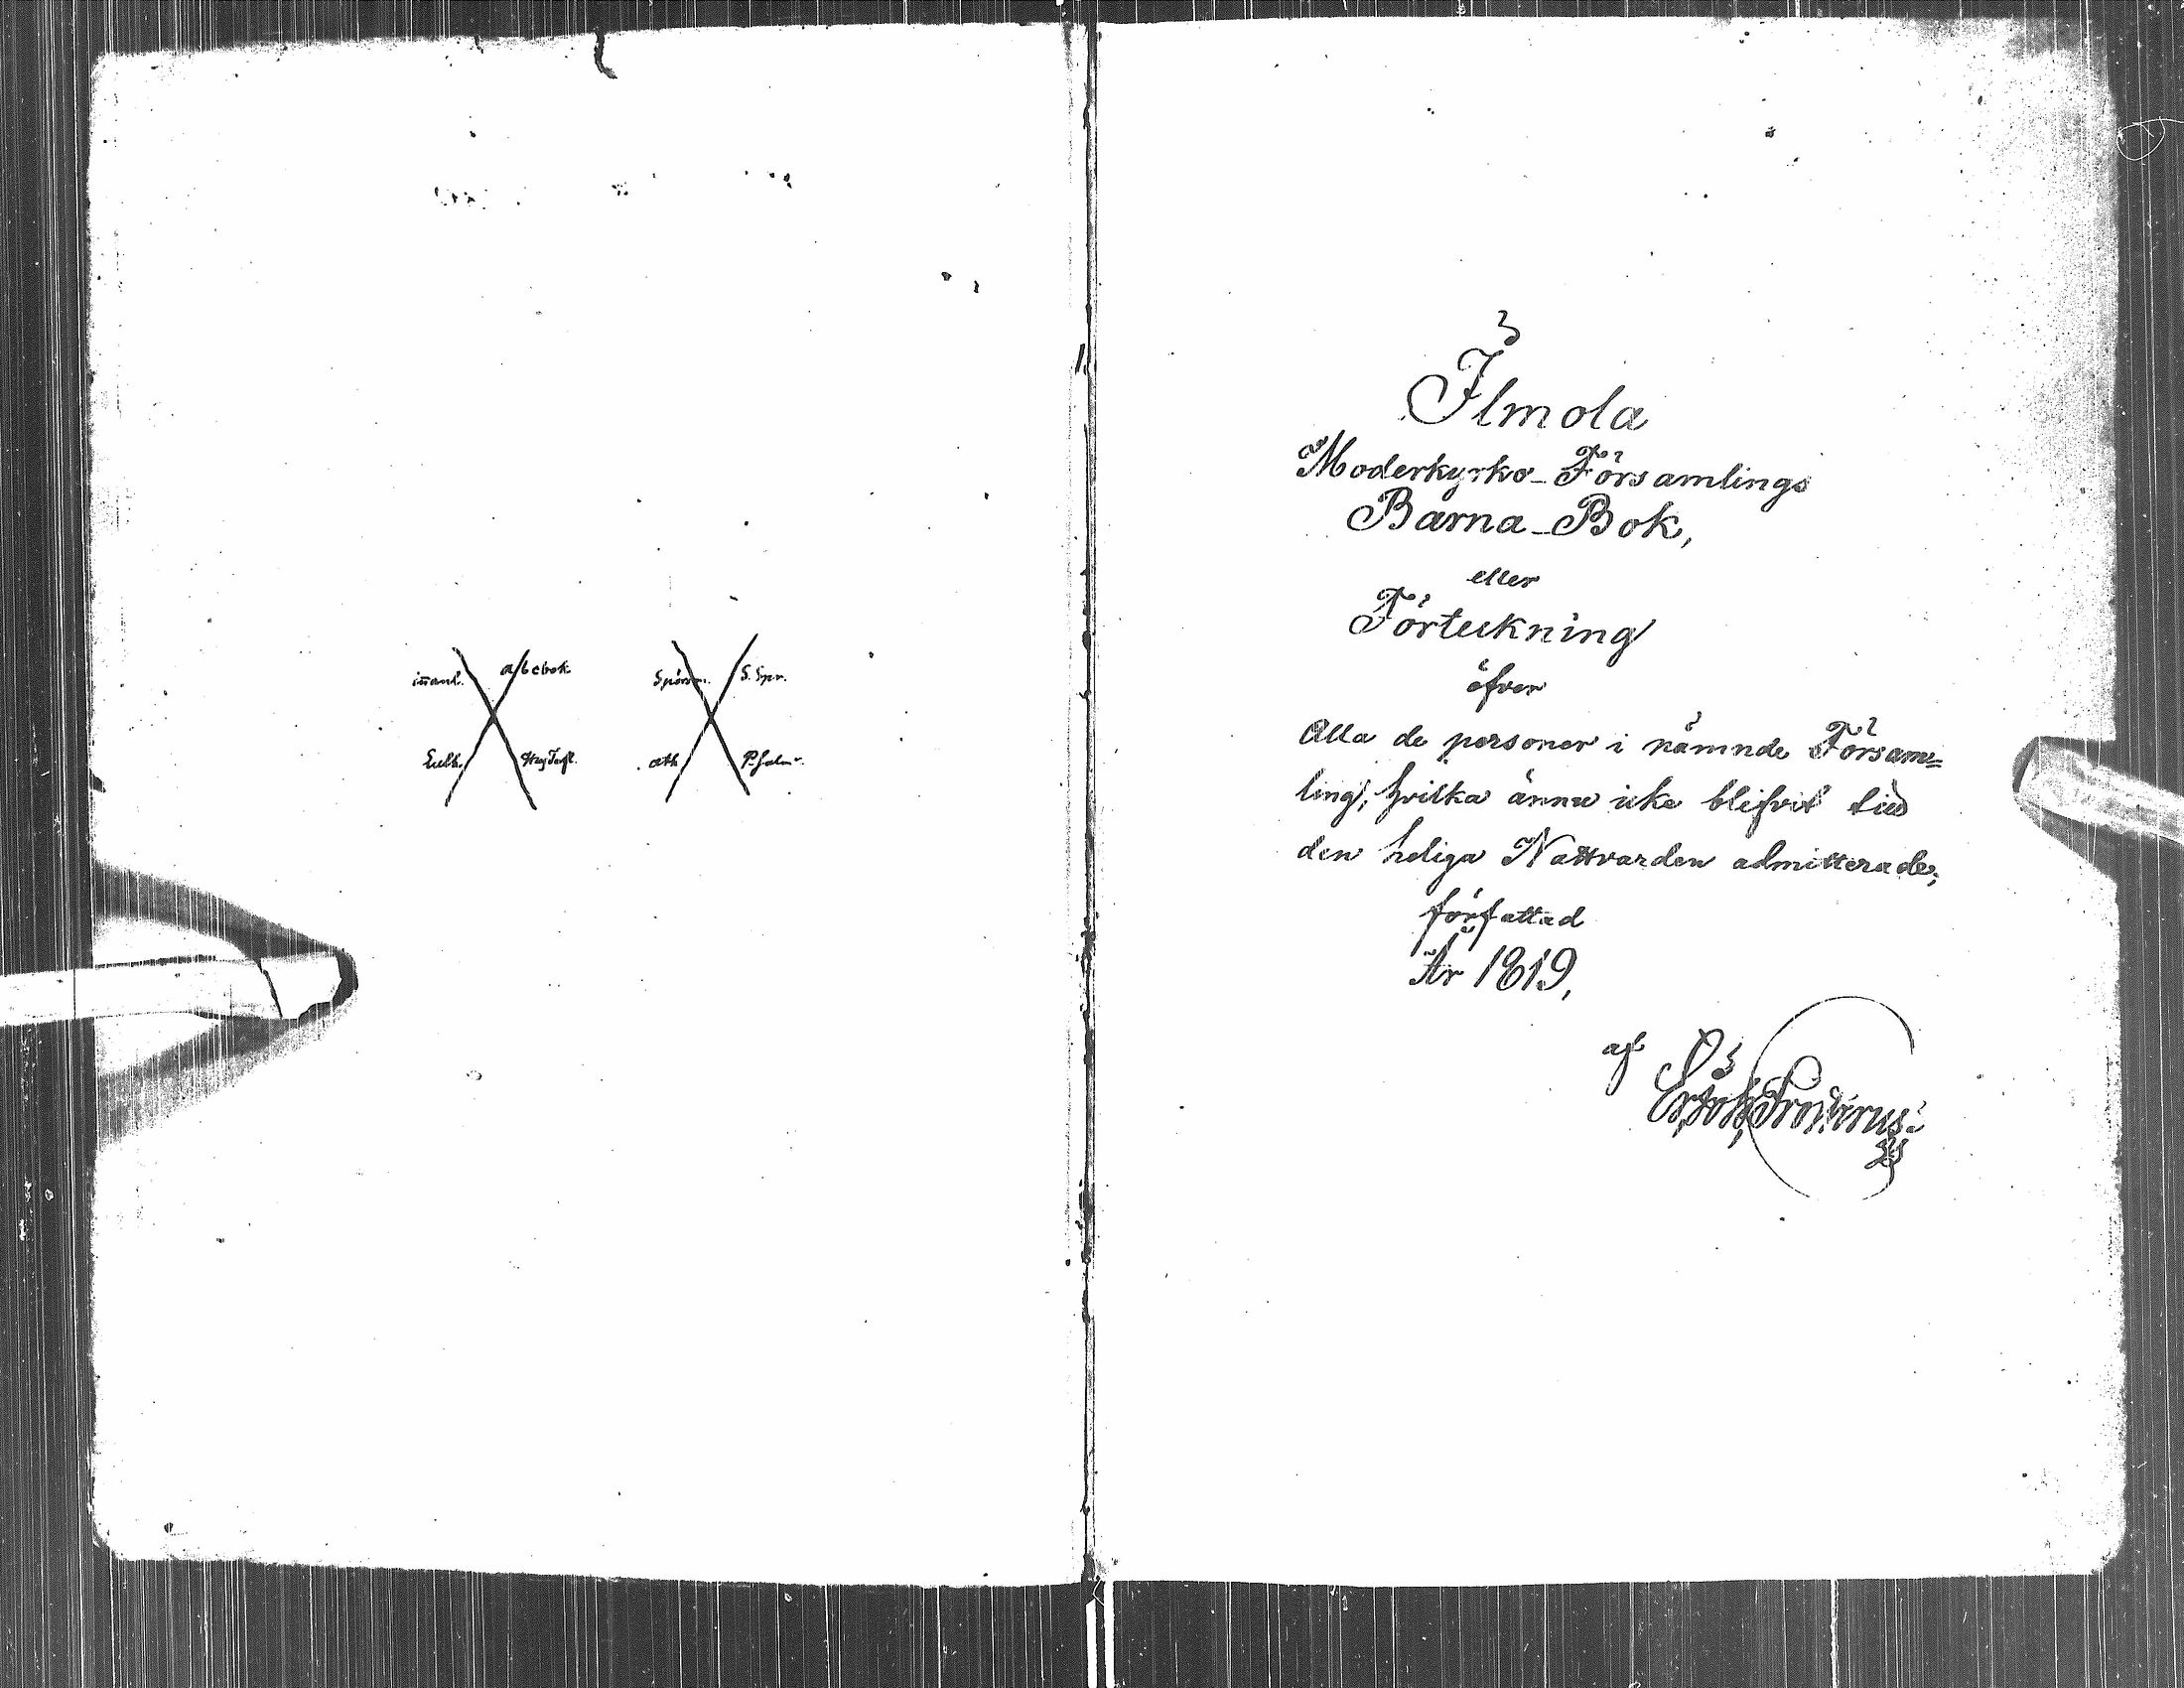 iñanl. abcbok.
Euth. HusTafl.
Spörsm. S. Spr.
ath. Psalmr.
Ilmola
Moderkyrko-Församlings
Barna-Bok,
eller
Förteckning
öfver
Alla de personer i nämnde Försam=
ling, hvilka ännu icke blifvit till
den heliga Nattvarden admitterade;
författad
År 1819,
af